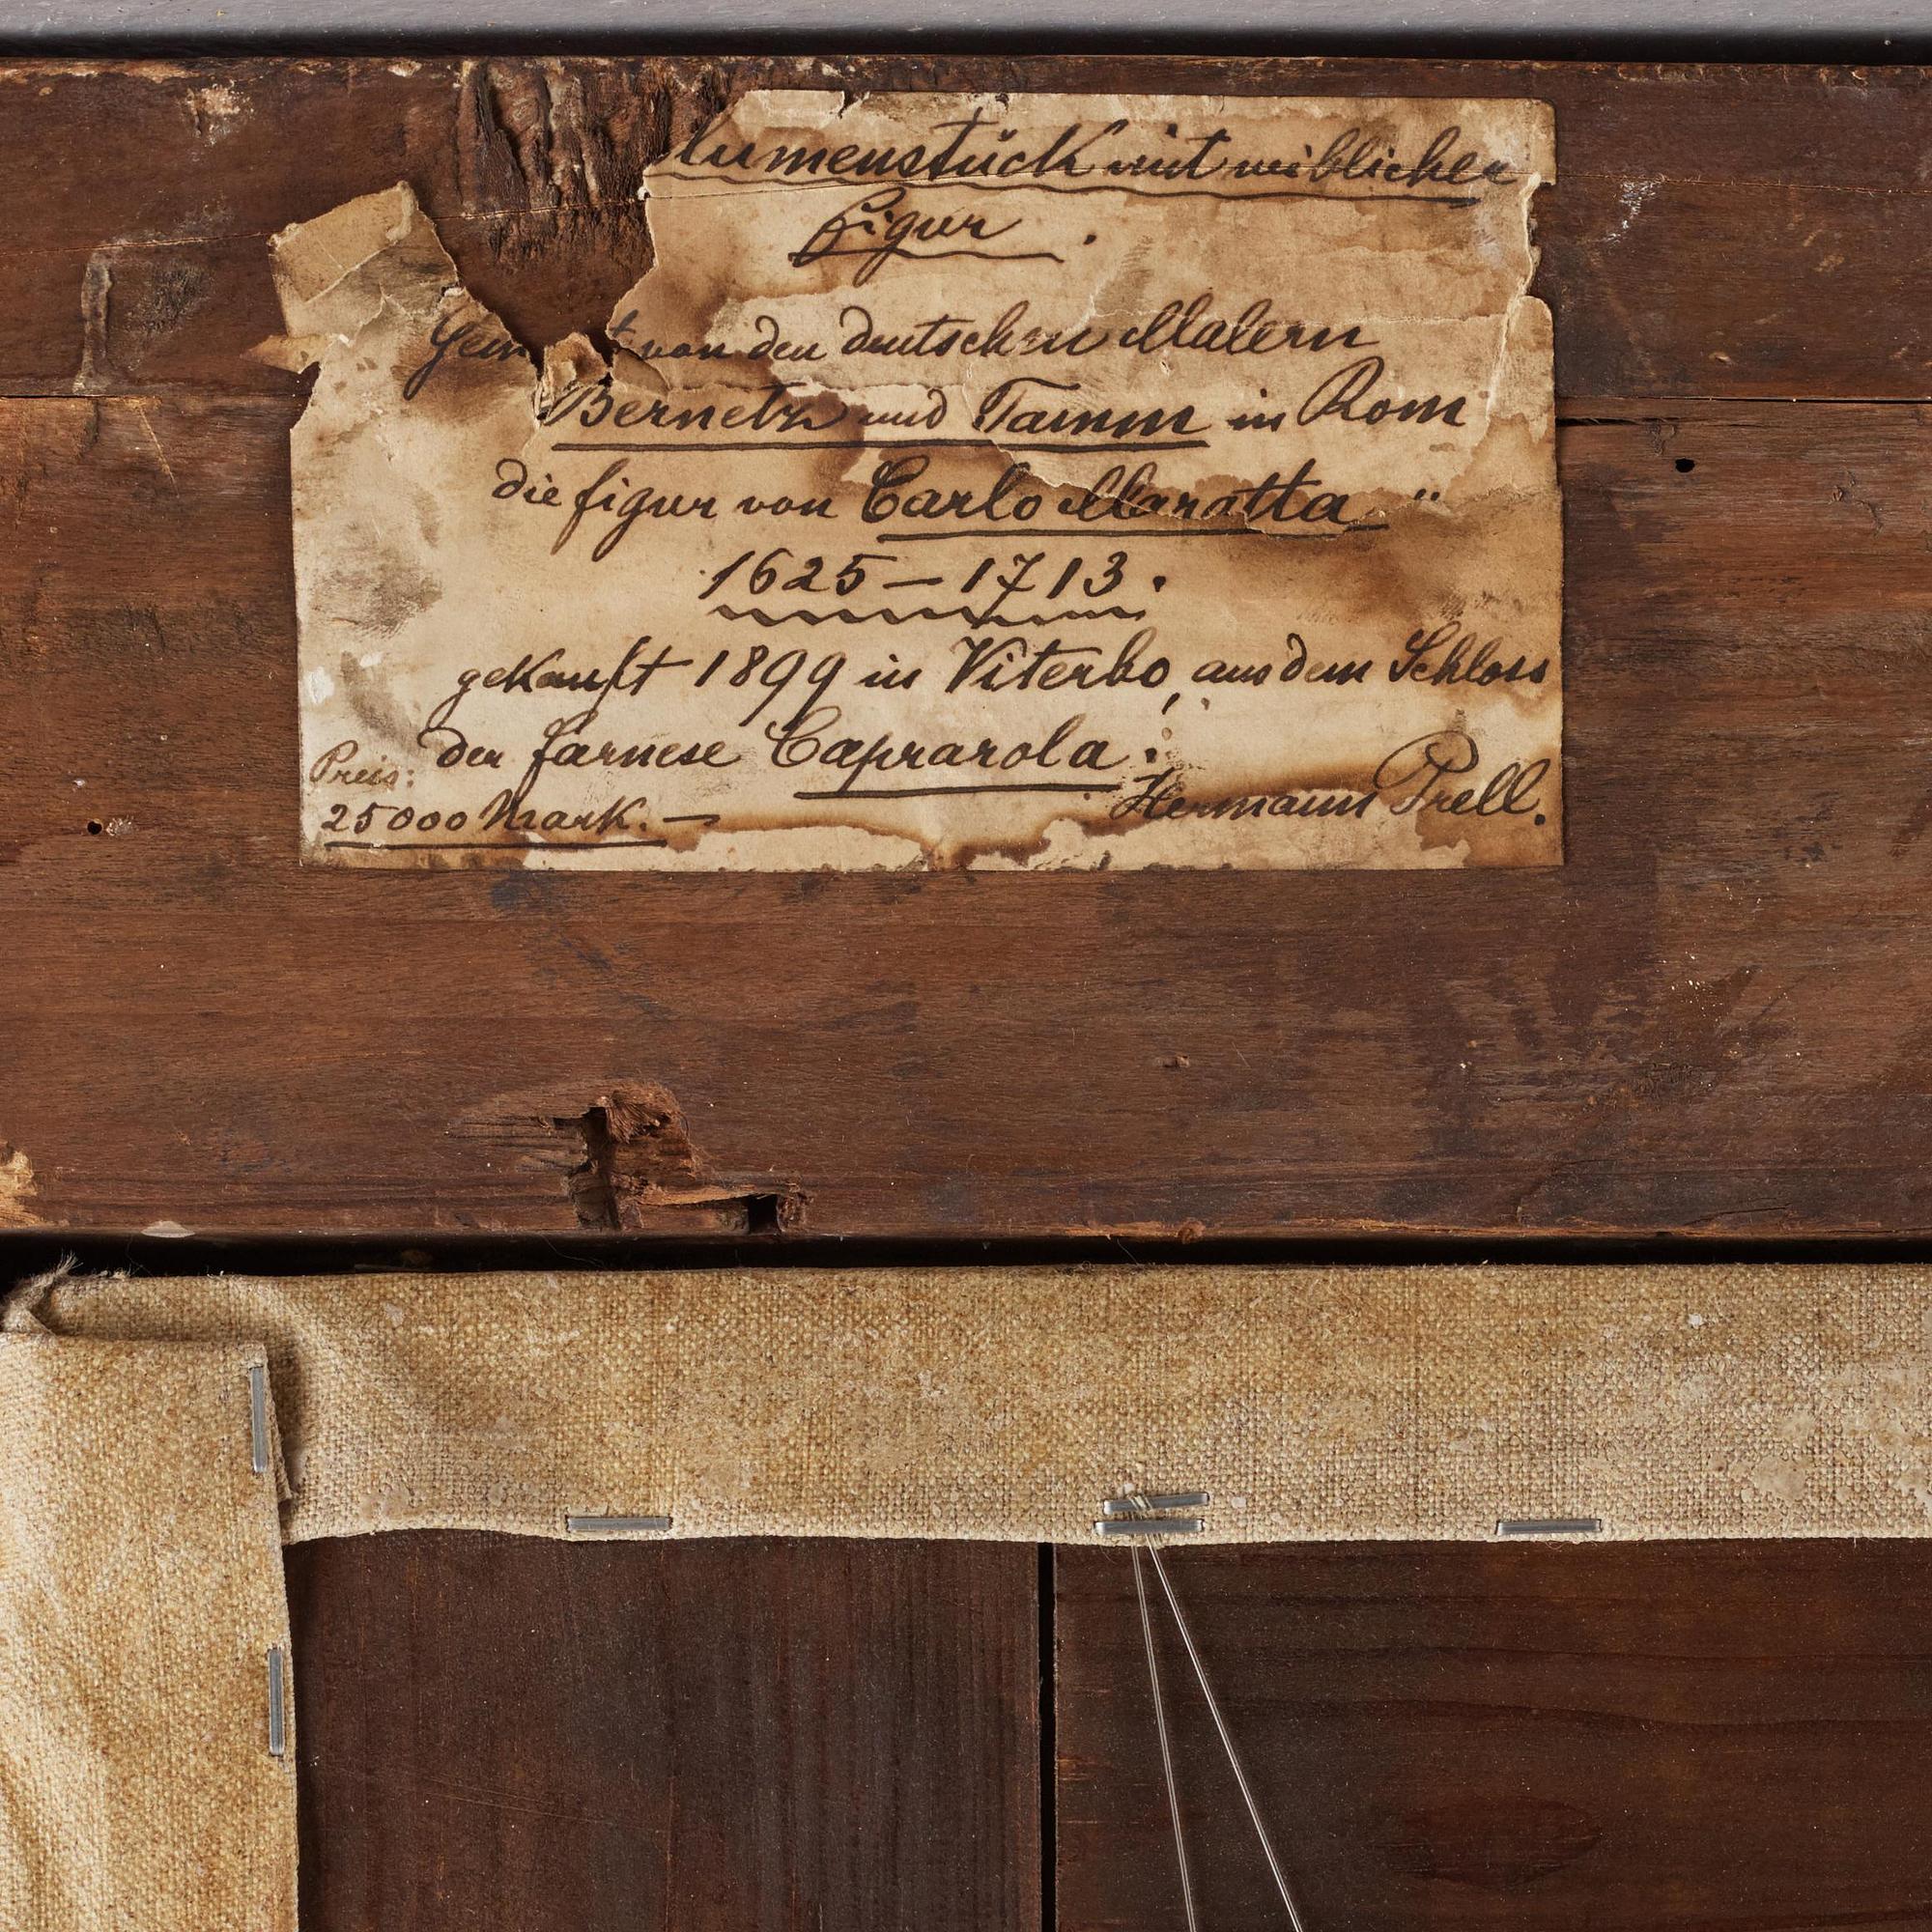 lumenstück mit weiblicher
Figur.
Gem t von den deutschen Malern
Bernetz und Tamm in Rom
die figur von Carlo Maratta "
1625 – 1713.
gekauft 1899 in Viterbo, aus dem Schloss
der farnese Caprarola!
Preis:
25000 Mark. —
Hermann Prell.